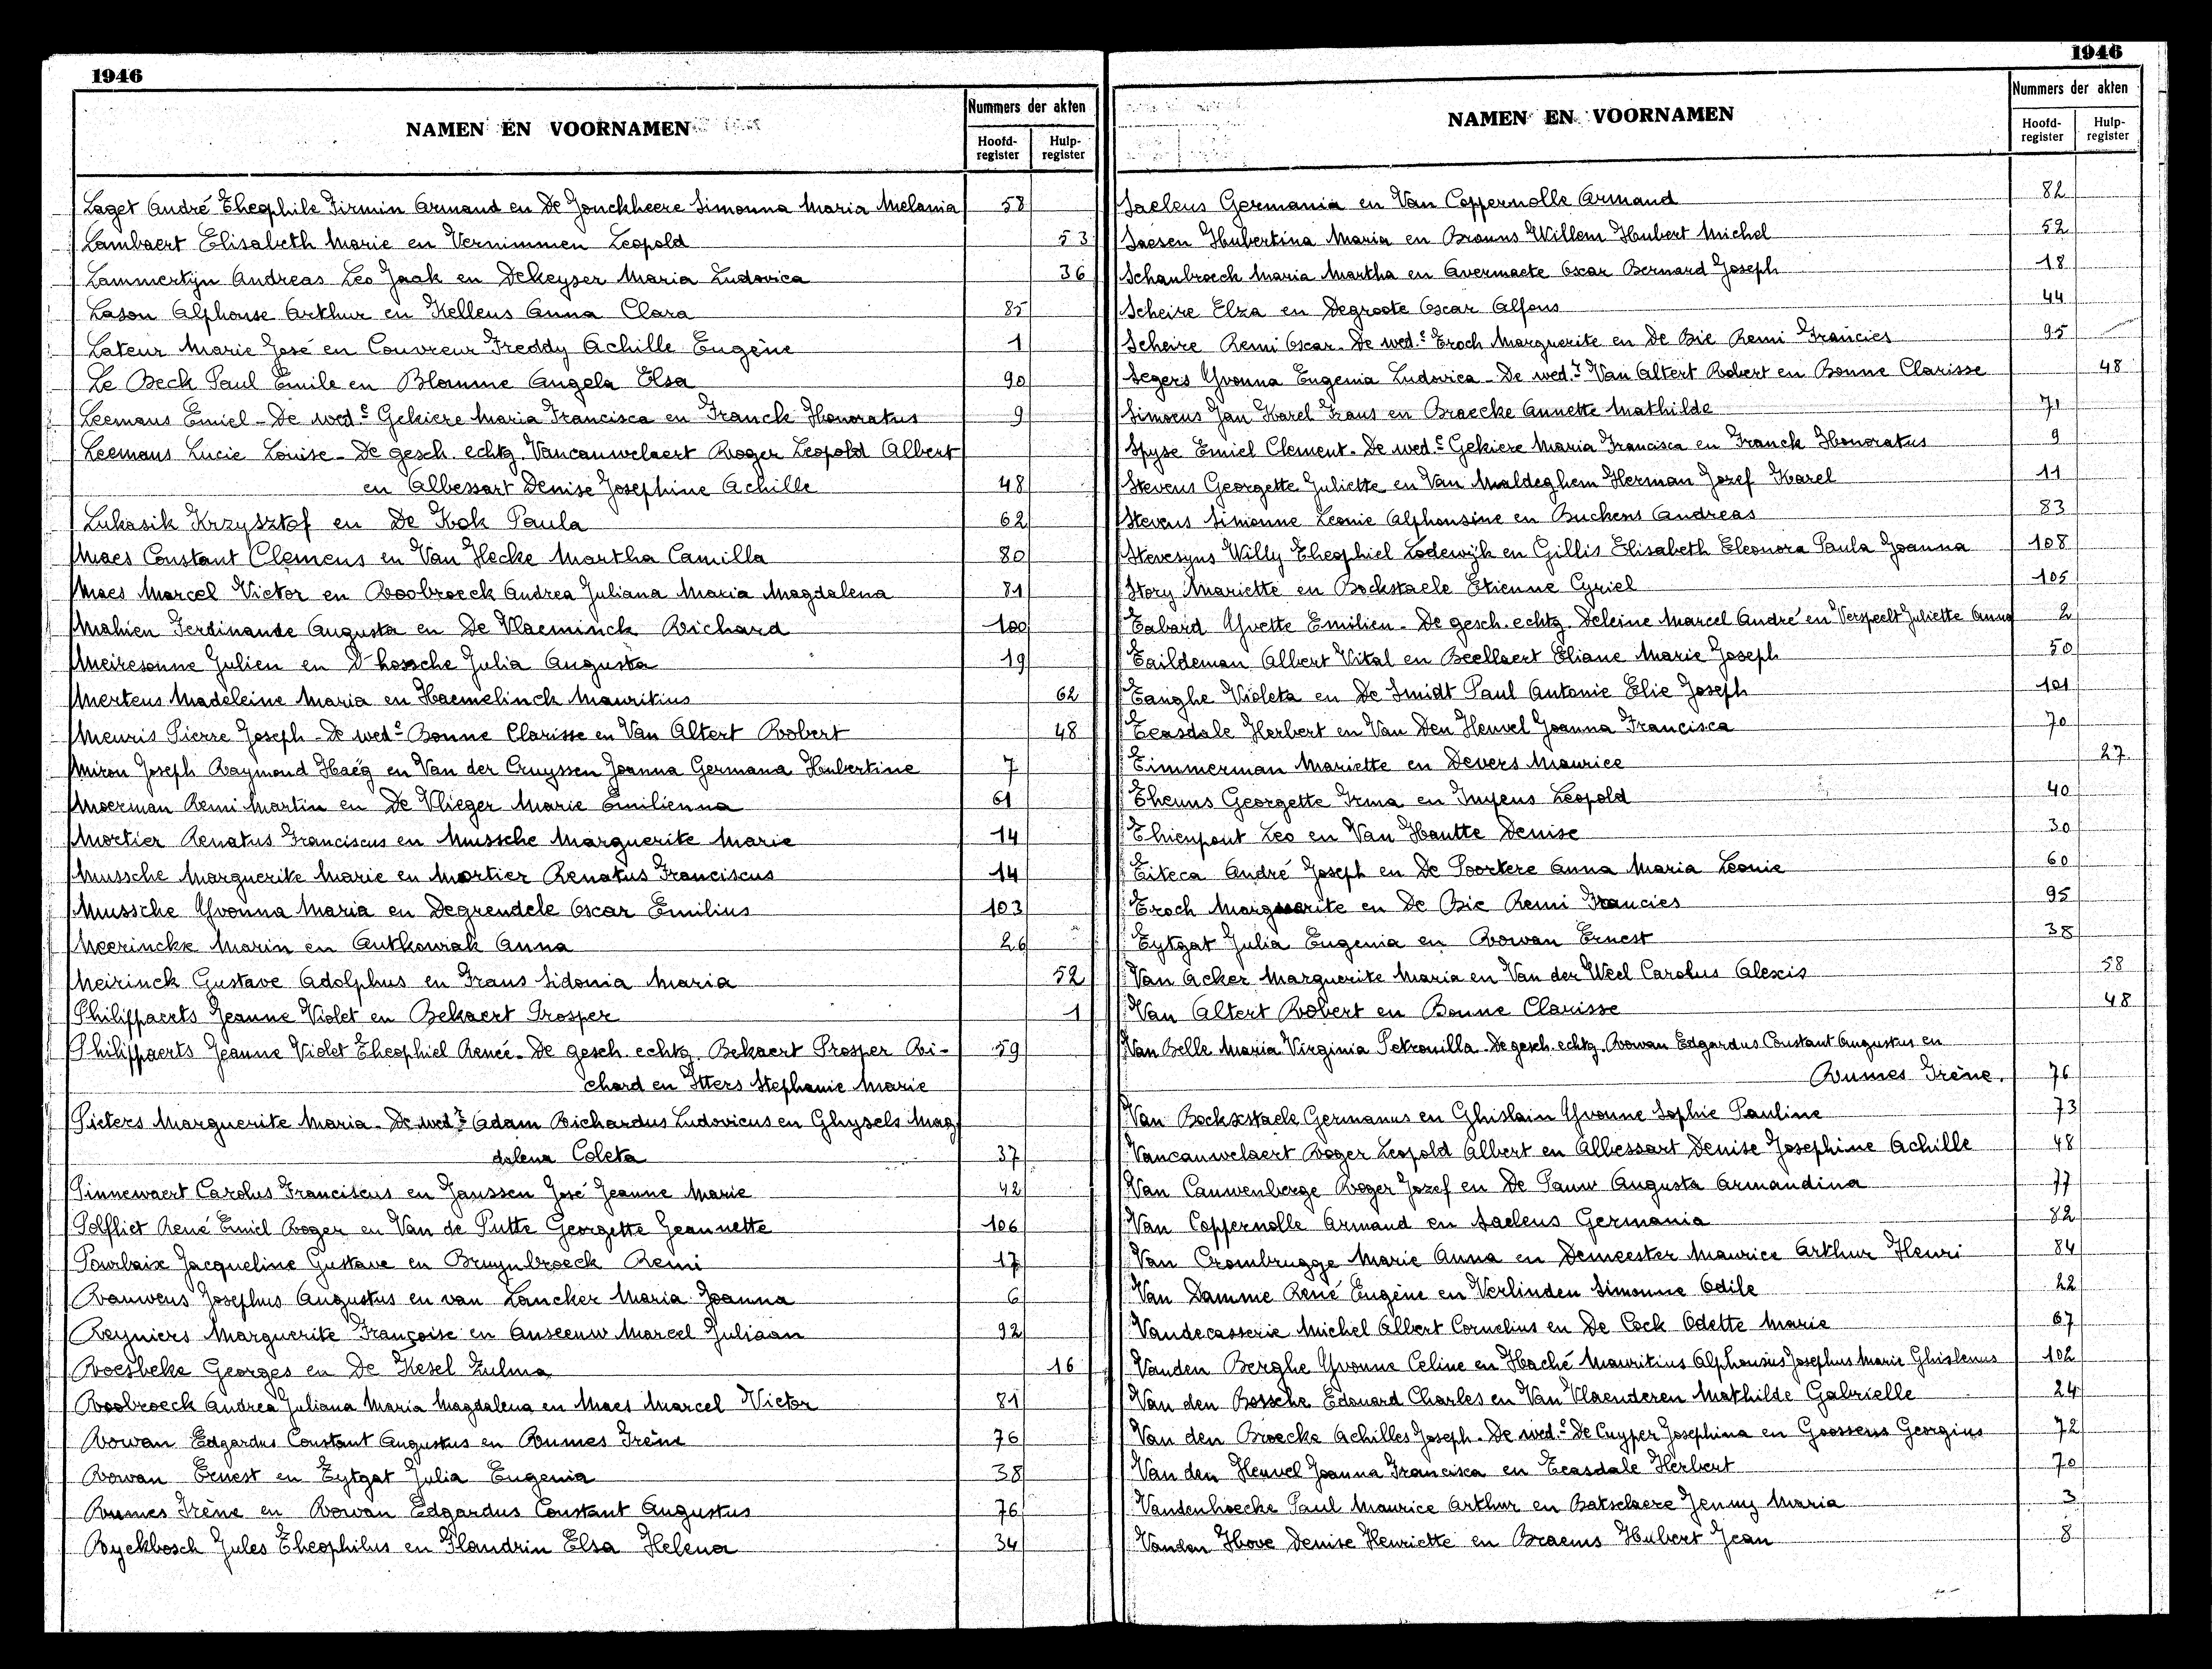 1946
NAMEN EN VOORNAMEN
Nummers der akten
Hoofd-register
Hulp-register
Laget André Theophile Firmin Armand en De Jonckheere Simonna Maria Melania 58
Lambaert Elisabeth Marie en Vernimmen Leopold 53
Lammertijn Andreas Leo Jaak en Dekeyser Maria Ludovica 36
Lason Alphonse Arthur en Kellens Anna Clara 85
Lateur Marie José en Couvreur Freddy Achille Eugène 1
Le Beck Paul Emile en Blomme Angela Elsa 90
Leemans Emiel - De wed.e Gekiere Maria Francisca en Franck Honoratus 9
Leemans Lucie Louise - De gesch. echtg. Vancauwelaert Roger Leopold Albert
en Albessart Denise Josephine Achille 48
Lukasik Krzysztof en De Kok Paula 62
Maes Constant Clemens en Van Hecke Martha Camilla 80
Maes Marcel Victor en Roobroeck Andrea Juliana Maria Magdalena 81
Mahien Ferdinande Augusta en De Vlaeminck Richard 100
Meiresonne Julien en D'hossche Julia Augusta 19
Mertens Madeleine Maria en Haemelinck Mauritius 62
Meuris Pierre Joseph - De wed.e Bonne Clarisse en Van Altert Robert 48
Miron Joseph Raymond Haëg en Van der Cruyssen Joanna Germana Hubertine 7
Moerman Remi Martin en De Vlieger Marie Emilienna 61
Mortier Renatus Franciscus en Mussche Marguerite Marie 14
Mussche Marguerite Marie en Mortier Renatus Franciscus 14
Mussche Yvonna Maria en Degrendele Oscar Emilius 103
Neerinckx Marin en Antkowiak Anna 26
Neirinck Gustave Adolphus en Frans Sidonia Maria 52
Philippaerts Jeanne Violet en Bekaert Prosper 1
Philippaerts Jeanne Violet Theophiel Renée - De gesch. echtg. Bekaert Prosper Ri- 59
chard en Itters Stephanie Marie
Pieters Marguerite Maria - De wed.r Adam Richardus Ludovicus en Ghysels Mag
dalena Coleta 37
Pinnewaert Carolus Franciscus en Janssen José Jeanne Marie 42
Polfliet René Emiel Roger en Van de Putte Georgette Jeannette 106
Pourbaix Jacqueline Gustave en Bruynbroeck Remi 17
Rauwens Josephus Augustus en van Lancker Maria Joanna 6
Reyniers Marguerite Françoise en Anseeuw Marcel Juliaan 92
Roesbeke Georges en De Kesel Zulma 16
Roobroeck Andrea Juliana Maria Magdalena en Maes Marcel Victor 81
Rowan Edgardus Constant Augustus en Rumes Irène 76
Rowan Ernest en Tytgat Julia Eugenia 38
Rumes Irène en Rowan Edgardus Constant Augustus 76
Ryckbosch Jules Theophilus en Flandrin Elsa Helena 34
1946
NAMEN EN VOORNAMEN
Nummers der akten
Hoofd-register
Hulp-register
Saelens Germania en Van Coppernolle Armand 82
Saesen Hubertina Maria en Brouns Willem Hubert Michel 52
Schaubroeck Maria Martha en Avermaete Oscar Bernard Joseph 18
Scheire Elza en Degroote Oscar Alfons 44
Scheire Remi Oscar - De wed.e Troch Marguerite en De Bie Remi Francies 95
Segers Yvonna Eugenia Ludovica - De wed.r Van Altert Robert en Bonne Clarisse 48
Simoens Jan Karel Frans en Braecke Annette Mathilde 71
Spyse Emiel Clement - De wed.e Gekiere Maria Francisca en Franck Honoratus 9
Stevens Georgette Juliette en Van Maldeghem Herman Jozef Karel 11
Stevens Simonne Leonie Alphonsine en Buckens Andreas 83
Stevesyns Willy Theophiel Lodewijk en Gillis Elisabeth Eleonora Paula Joanna 108
Story Mariette en Bockstaele Etienne Cyriel 105
Tabard Yvette Emilien - De gesch. echtg. Deleine Marcel André en Verspeelt Juliette Anna 2
Taildeman Albert Vital en Beellaert Eliane Marie Joseph 50
Tanghe Violeta en De Smidt Paul Antonie Elie Joseph 101
Teasdale Herbert en Van Den Heuvel Joanna Francisca 70
Timmerman Mariette en Devers Maurice 27
Theuns Georgette Irma en Impens Leopold 40
Thienpont Leo en Van Hautte Denise 30
Titeca André Joseph en De Poortere Anna Maria Leonie 60
Troch Marguerite en De Bie Remi Francies 95
Tytgat Julia Eugenia en Rowan Ernest 38
Van Acker Marguerite Maria en Van der Weel Carolus Alexis 58
Van Altert Robert en Bonne Clarisse 48
Van Belle Maria Virginia Petronilla - De gesch. echtg. Rowan Edgardus Constant Augustus en
Rumes Irène. 76
Van Bockxstaele Germanus en Ghislain Yvonne Sophie Pauline 73
Vancauwelaert Roger Leopold Albert en Albessart Denise Josephine Achille 48
Van Cauwenberge Roger Jozef en De Pauw Augusta Armandina 77
Van Coppernolle Armand en Saelens Germania 82
Van Crombrugge Marie Anna en Demeester Maurice Arthur Henri 84
Van Damme René Eugène en Verlinden Simonne Odile 22
Vandecasserie Michel Albert Cornelius en De Cock Odette Marie 67
Vanden Berghe Yvonne Celine en Haché Mauritius Alphonsus Josephus Marie Ghislenus 102
Van den Bossche Edouard Charles en Van Vlaenderen Mathilde Gabrielle 24
Van den Broecke Achilles Joseph - De wed.e De Cuyper Josephina en Goossens Georgius 72
Van den Heuvel Joanna Francisca en Teasdale Herbert 70
Vandenhoecke Paul Maurice Arthur en Batselaere Jenny Maria 3
Vanden Hove Denise Henriette en Braems Hubert Jean 8